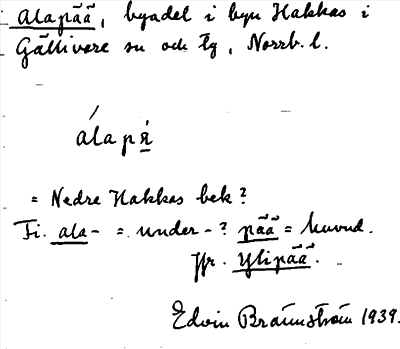 Alapää, byadel i byn Hakkas i
Gällivare sn och tg, Norrb. l.
álapä̀
= Nedre Hakkas bek?
Fi. ala- = under-? pää = huvud.
Jfr. Ylipää.
Edvin Brännström 1939.